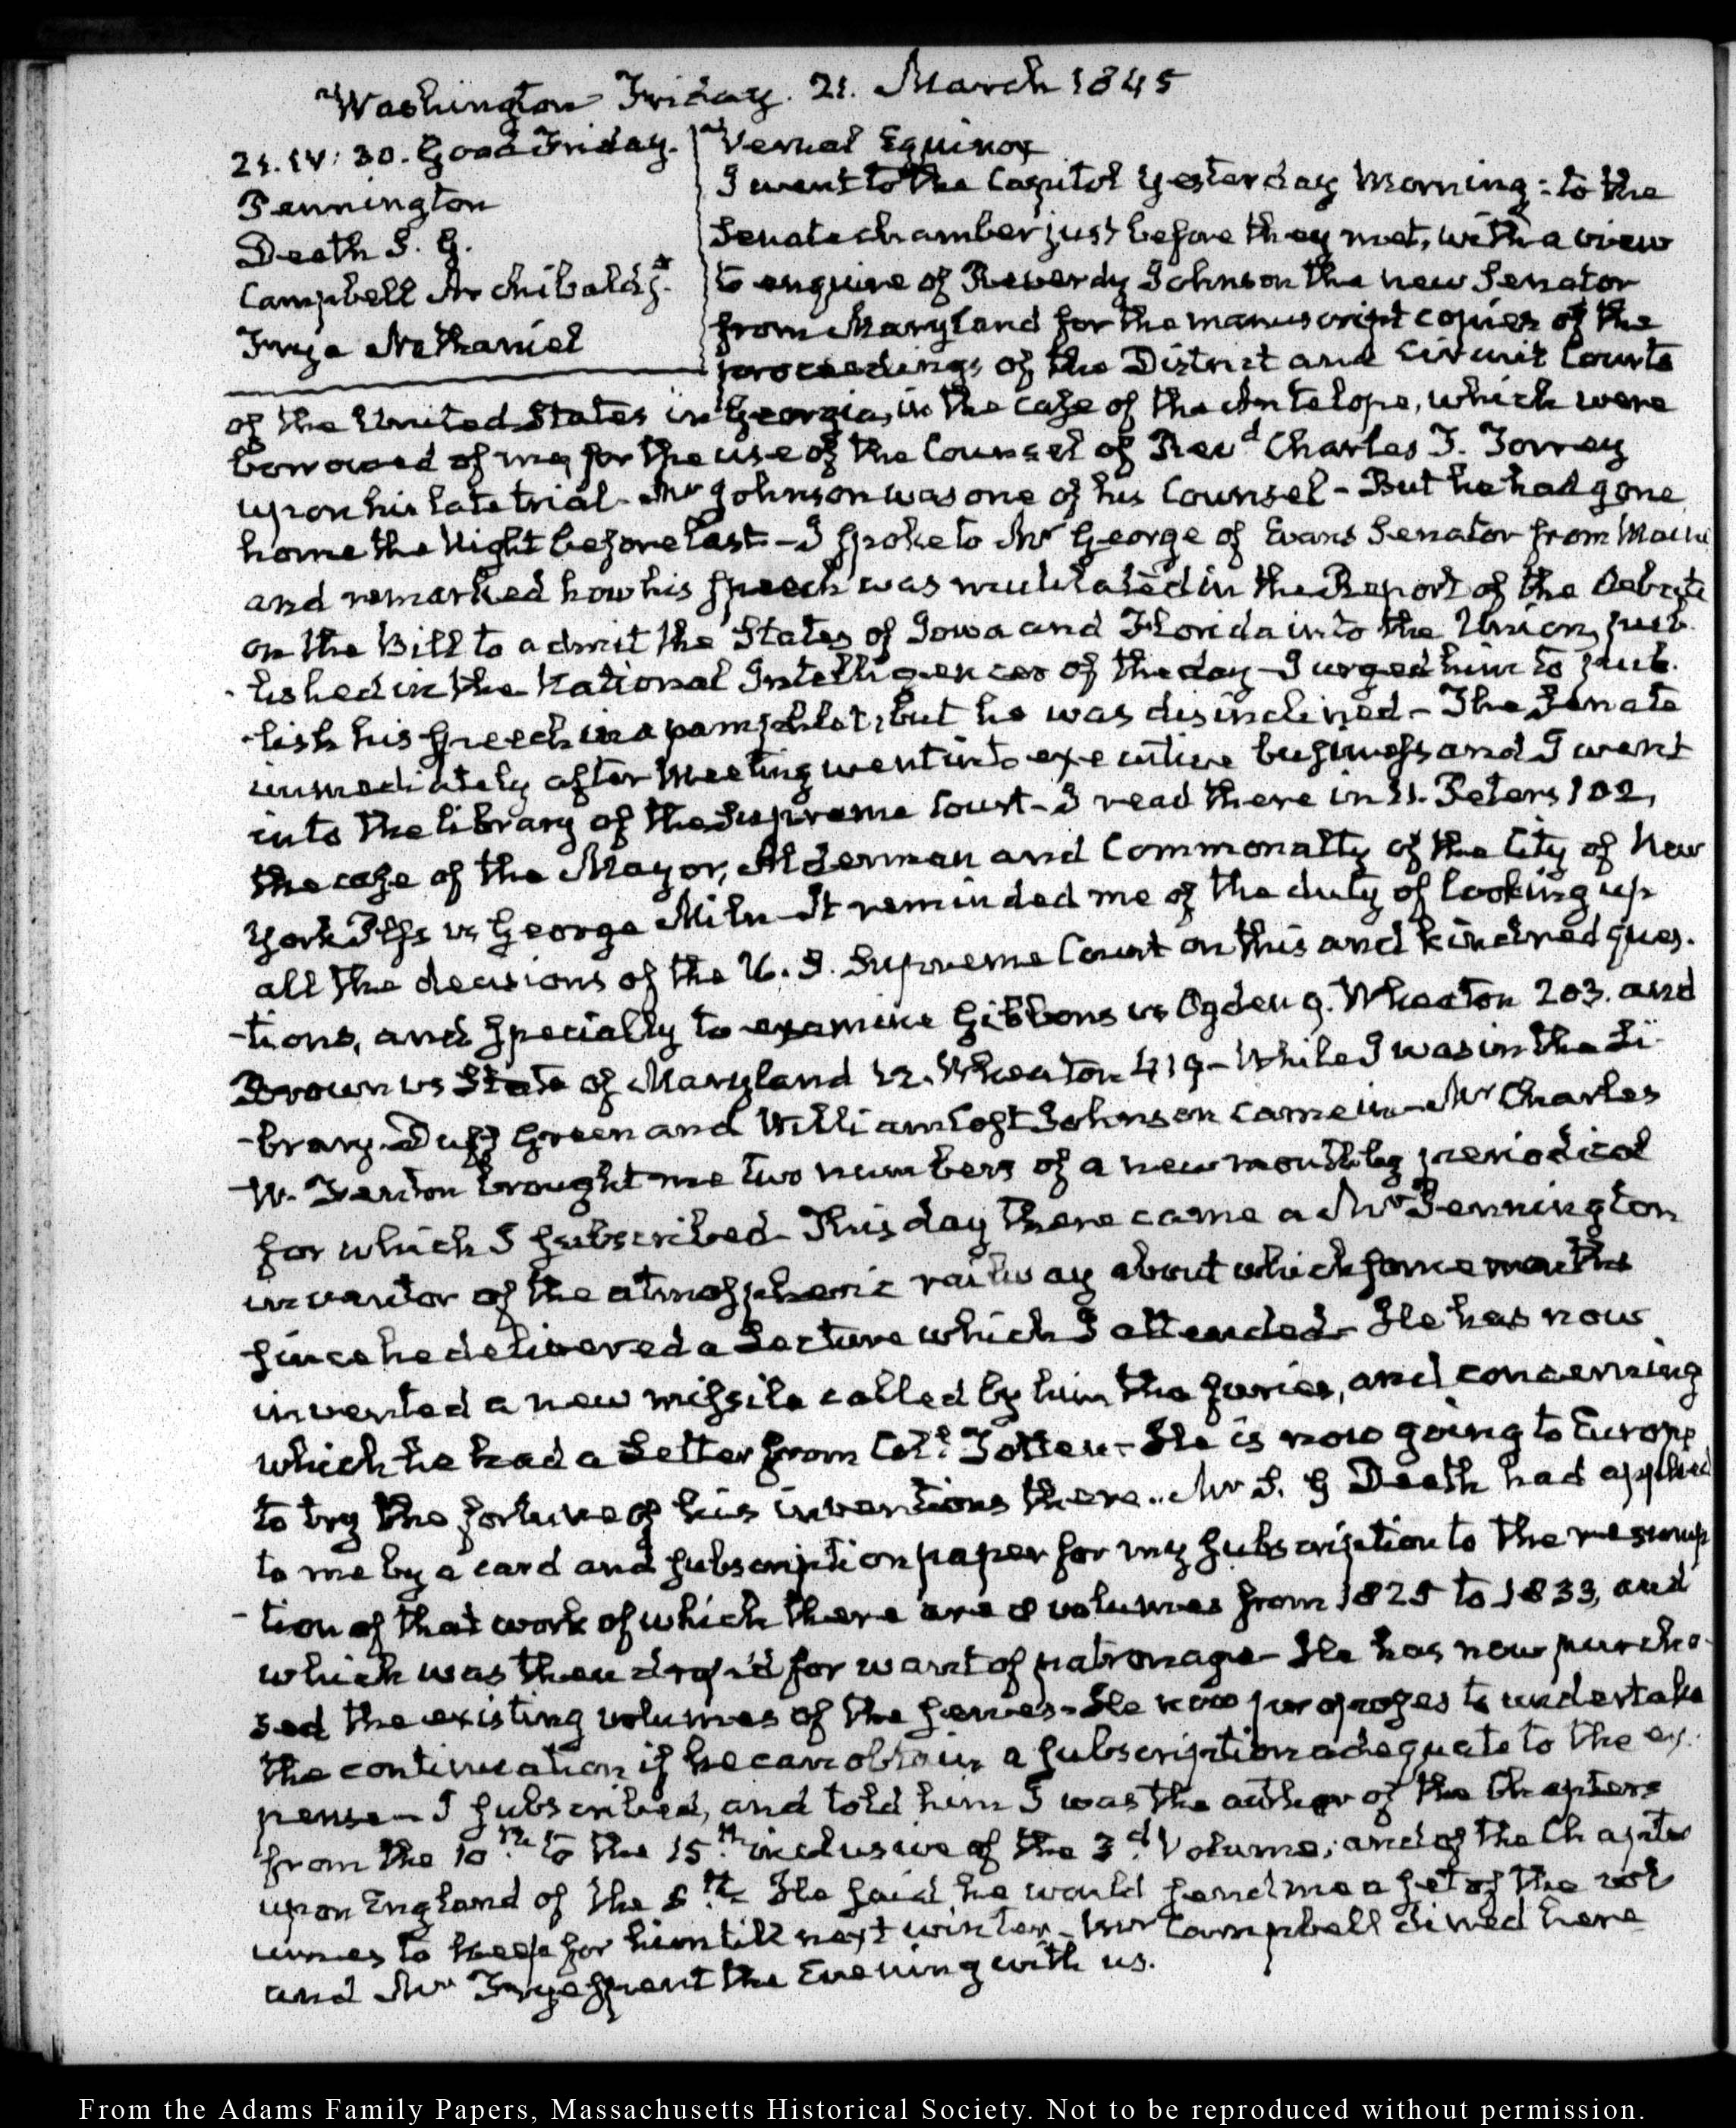 Washington Friday. 21. March 1845
21. IV: 30. Good Friday.
Pennington
Death S. G.
Campbell Archibald
Frye Nathaniel
Vernal Equinox
I went to the Capitol yesterday Morning: to the
Senate chamber just before they met, with a view
to enquire of Reverdy Johnson the new Senator
from Maryland for the manuscript copies of the
proceedings of the District and Circuit Courts
of the United States in Georgia, in the case of the Antelope, which were
borrowed of me, for the use of the Counsel of Revd Charles T. Torrey
upon his late trial - Mr Johnson was one of his Counsel - But he had gone
home the Night before last - I spoke to Mr George of Evans Senator from Maine
and remarked how his speech was mutilated in the Report of the Debate
on the Bill to admit the States of Iowa and Florida into the Union, pub-
-lished in the National Intelligencer of the day - I urged him to pub-
-lish his speech in a pamphlet, but he was disinclined - The Senate
immediately after Meeting went into executive business and I went
into the library of the Supreme Court - I read there in 11. Peters 102,
the case of the Mayor, Alderman and Commonalty of the City of New
York Plfs vs George Miln - It reminded me of the duty of looking up
all the decisions of the U. S. Supreme Court on this and kindred ques-
-tions, and specially to examine Gibbons vs Ogden 9. Wheaton 203. and
Brown vs State of Maryland 12. Wheaton 419 - While I was in the Li-
-brary. Duff Green and William Cost Johnson came in - Mr Charles
W. brought me two numbers of a new monthly periodical
for which I subscribed - This day there came a Mr Pennington
inventor of the atmospheric railway about which some months
since he delivered a Lecture which I attended - He has now
invented a new missile called by him the furies, and concerning
which he had a Letter from Coll. Totten - He is now going to Europe
to try the fortune of his inventions there.. Mr S. G Death had applied
to me by a card and subscription paper for my subscription to the resump
-tion of that work of which there are 8 volumes from 1825 to 1833, and
which was then drop'd for want of patronage - He has now purcha-
sed the existing volumes of the series - He now proposes to undertake
the continuation if he can obtain a subscription adequate to the ex-
pense - I subscribed, and told him I was the author of the Chapters
from the 10th to the 15th inclusive of the 3d Volume, and of the Chapter
upon England of the 5th He said he would send me a set of the vol
umes to keep for him till next winter - Mr Campbell dined here
and Mr Frye spent the Evening with us.
From the Adams Family Papers, Massachusetts Historical Society. Not to be reproduced without permission.